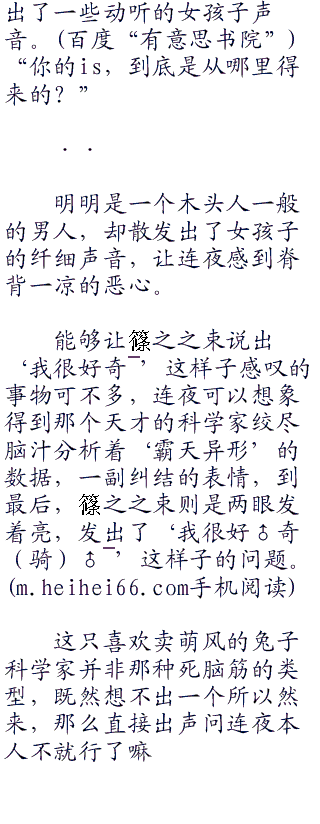 出了一些动听的女孩子声
音。(百度“有意思书院”)
“你的is，到底是从哪里得
来的？”
．．
明明是一个木头人一般
的男人，却散发出了女孩子
的纤细声音，让连夜感到脊
背一凉的恶心。
能够让篠之之束说出
‘我很好奇¯’这样子感叹的
事物可不多，连夜可以想象
得到那个天才的科学家绞尽
脑汁分析着‘霸天异形’的
数据，一副纠结的表情，到
最后，篠之之束则是两眼发
着亮，发出了‘我很好♂奇
（骑）♂¯’这样子的问题。
(m.heihei66.com手机阅读)
这只喜欢卖萌风的兔子
科学家并非那种死脑筋的类
型，既然想不出一个所以然
来，那么直接出声问连夜本
人不就行了嘛